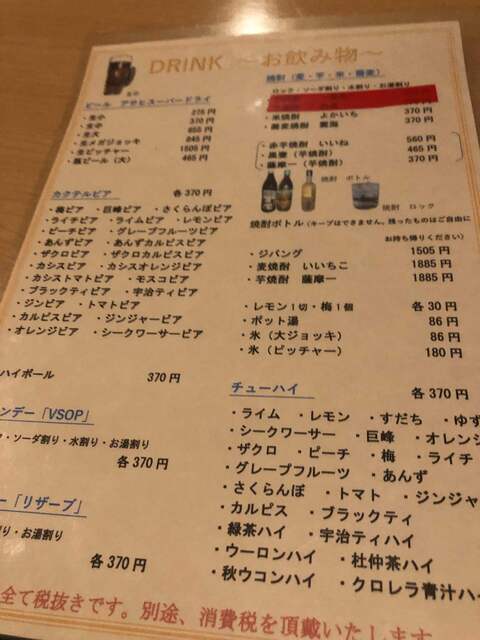 DRINK ～お飲み物～
生中
ビール アサヒスーパードライ
・生小 275円
・生中 370円
・生大 655円
・生メガジョッキ 845円
・生ピッチャー 1505円
・瓶ビール（大） 465円
カクテルビア 各370円
・梅ビア ・巨峰ビア ・さくらんぼビア
・ライチビア ・ライムビア ・レモンビア
・ピーチビア ・グレープフルーツビア
・あんずビア ・あんずカルピスビア
・ザクロビア ・ザクロカルピスビア
・カシスビア ・カシスオレンジビア
・カシストマトビア ・モスコビア
・ブラックティビア ・宇治ティビア
・ジンビア ・トマトビア
・カルピスビア ・ジンジャービア
・オレンジビア ・シークワーサービア
ハイボール 370円
ンデー「VSOP」
・ソーダ割り・水割り・お湯割り
各370円
ー「リザーブ」
割り・お湯割り
各370円
焼酎（麦・芋・米・蕎麦）
ロック・ソーダ割り・水割り・お湯割り
・米焼酎 よかいち 370円
・蕎麦焼酎 雲海 370円
・赤芋焼酎 いいね 560円
・黒霧（芋焼酎） 465円
・薩摩一（芋焼酎） 370円
焼酎 ボトル
焼酎 ロック
焼酎ボトル（キープはできません。残ったものはご自由に
お持ち帰りください）
・ジパング 1505円
・麦焼酎 いいちこ 1885円
・芋焼酎 薩摩一 1885円
・レモン1切・梅1個 各30円
・ポット湯 86円
・氷（大ジョッキ） 86円
・氷（ピッチャー） 180円
チューハイ 各370円
・ライム ・レモン ・すだち ・ゆず
・シークワーサー ・巨峰 ・オレンジ
・ザクロ ・ピーチ ・梅 ・ライチ
・グレープフルーツ ・あんず
・さくらんぼ ・トマト ・ジンジャ
・カルピス ・ブラックティ
・緑茶ハイ ・宇治ティハイ
・ウーロンハイ ・杜仲茶ハイ
・秋ウコンハイ ・クロレラ青汁ハイ
全て税抜きです。別途、消費税を頂戴いたします